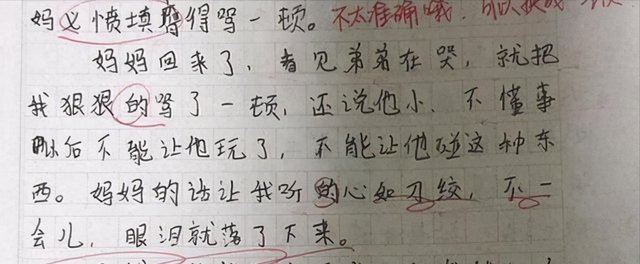 妈义愤填膺得骂一顿。不太准确哦,可以换成
妈妈回来了,看见弟弟在哭,就把
我狠狠的骂了一顿,还说他小、不懂事
以后不能让他玩了,不能让他碰这种东
西。妈妈的话让我听的心如刀绞,不一
会儿,眼泪就落了下来。